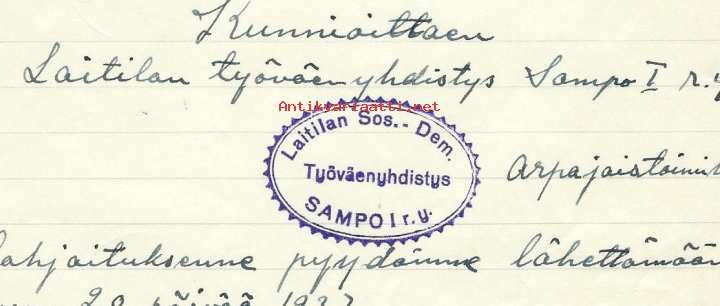 Kunnioittaen
Laitilan työväenyhdistys Sampo I r.y
Antikvariaatti.net
Laitilan Sos.-Dem.
Työväenyhdistys
SAMPO I r.y.
Arpajaistoimi
lahjoituksenne pyydämme lähettämään
20 päivää 1937